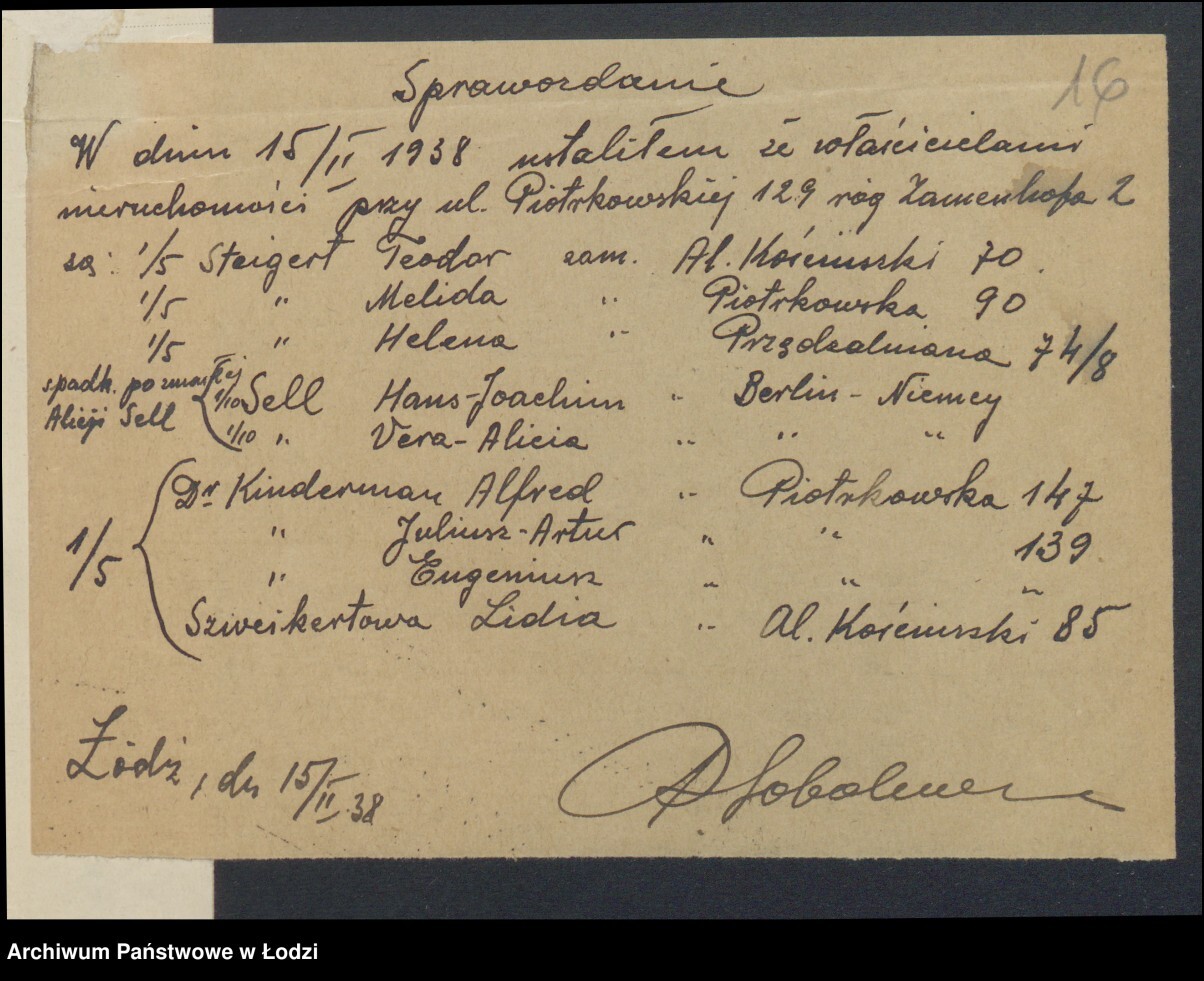 16
Sprawozdanie
W dniu 15/II 1938 ustaliłem że właścicielami
nieruchomości przy ul. Piotrkowskiej 129 róg Zamenhofa 2
są: 1/5 Steigert Teodor zam. Al. Kościuszki 70.
1/5 " Melida " Piotrkowska 90
1/5 " Helena " Przędzalniana 74/8
spadk. po zmarłej
Alicji Sell
1/10 Sell Hans-Joachim " Berlin - Niemcy
1/10 " Vera-Alicia " " "
1/5
Dr Kinderman Alfred " Piotrkowska 147
" Juliusz-Artur " " 139
" Eugeniusz " " "
Szweikertowa Lidia " Al. Kościuszki 85
Łódź, dn 15/II 38
Archiwum Państwowe w Łodzi